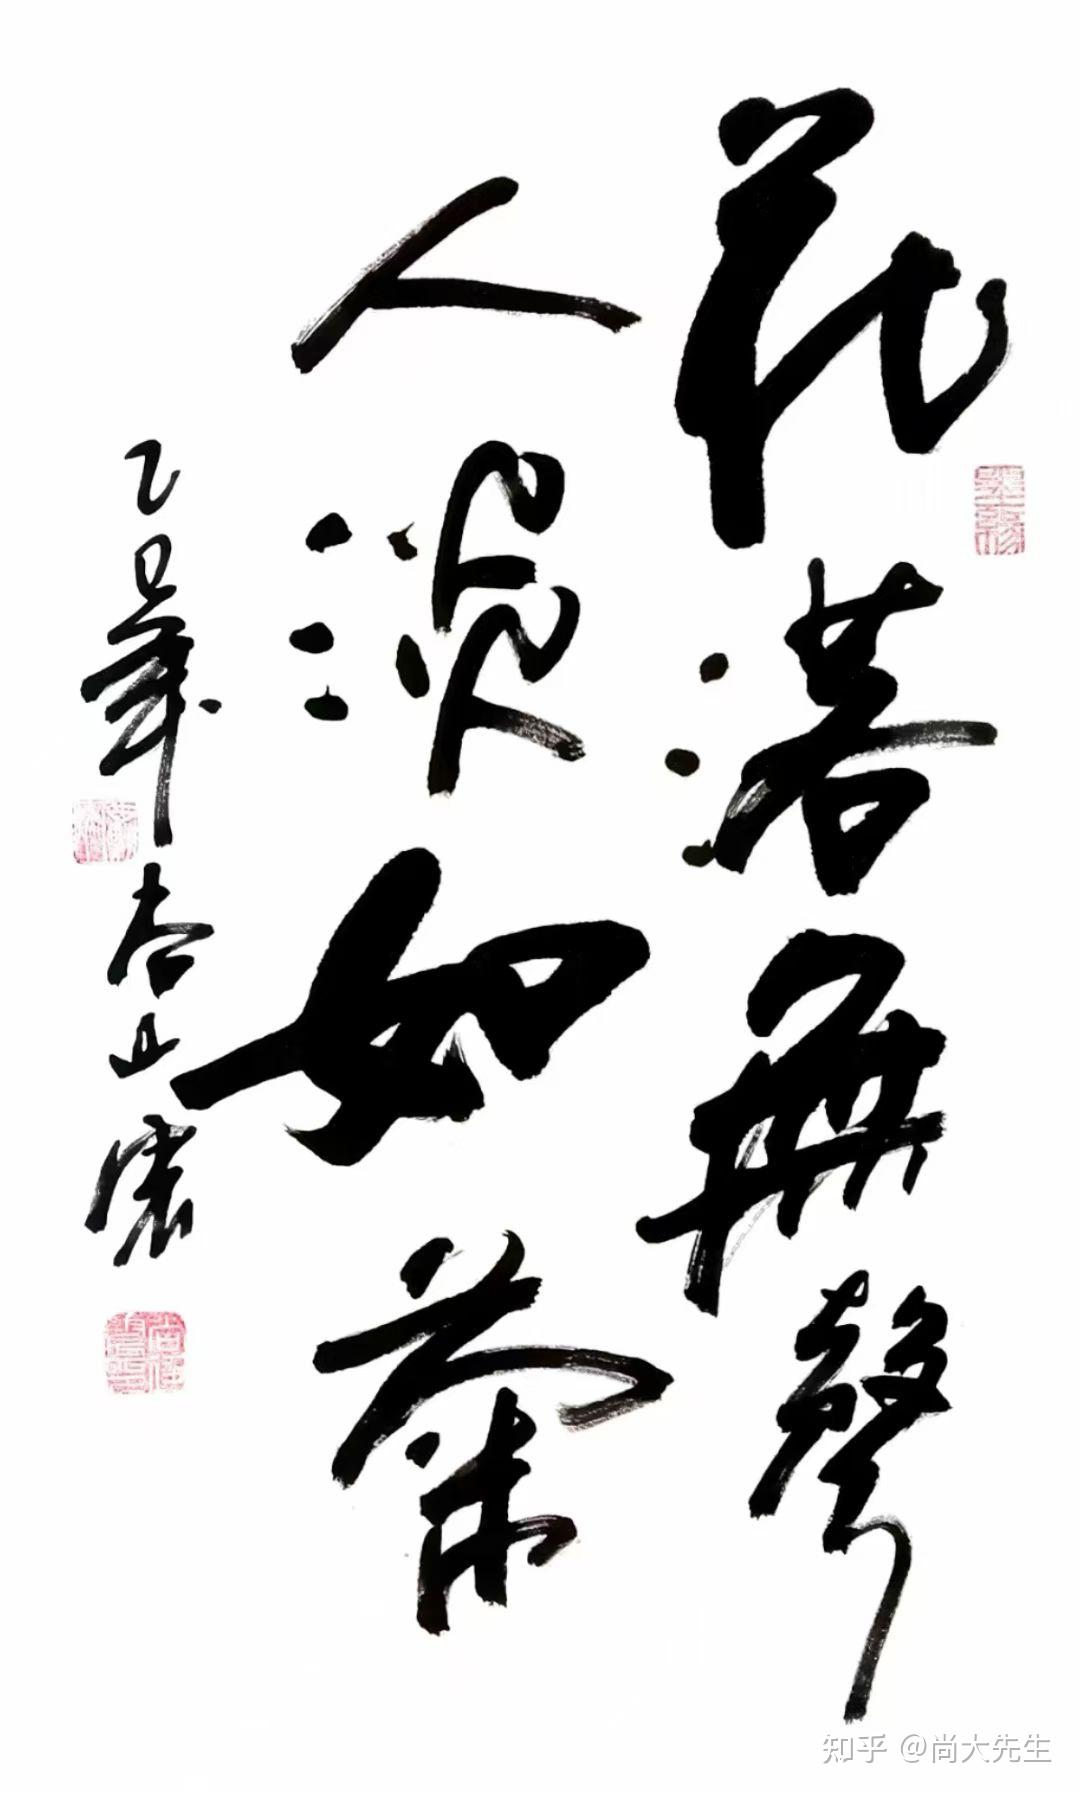 花落無聲
人淡如菊
乙巳
知乎 @尚大先生